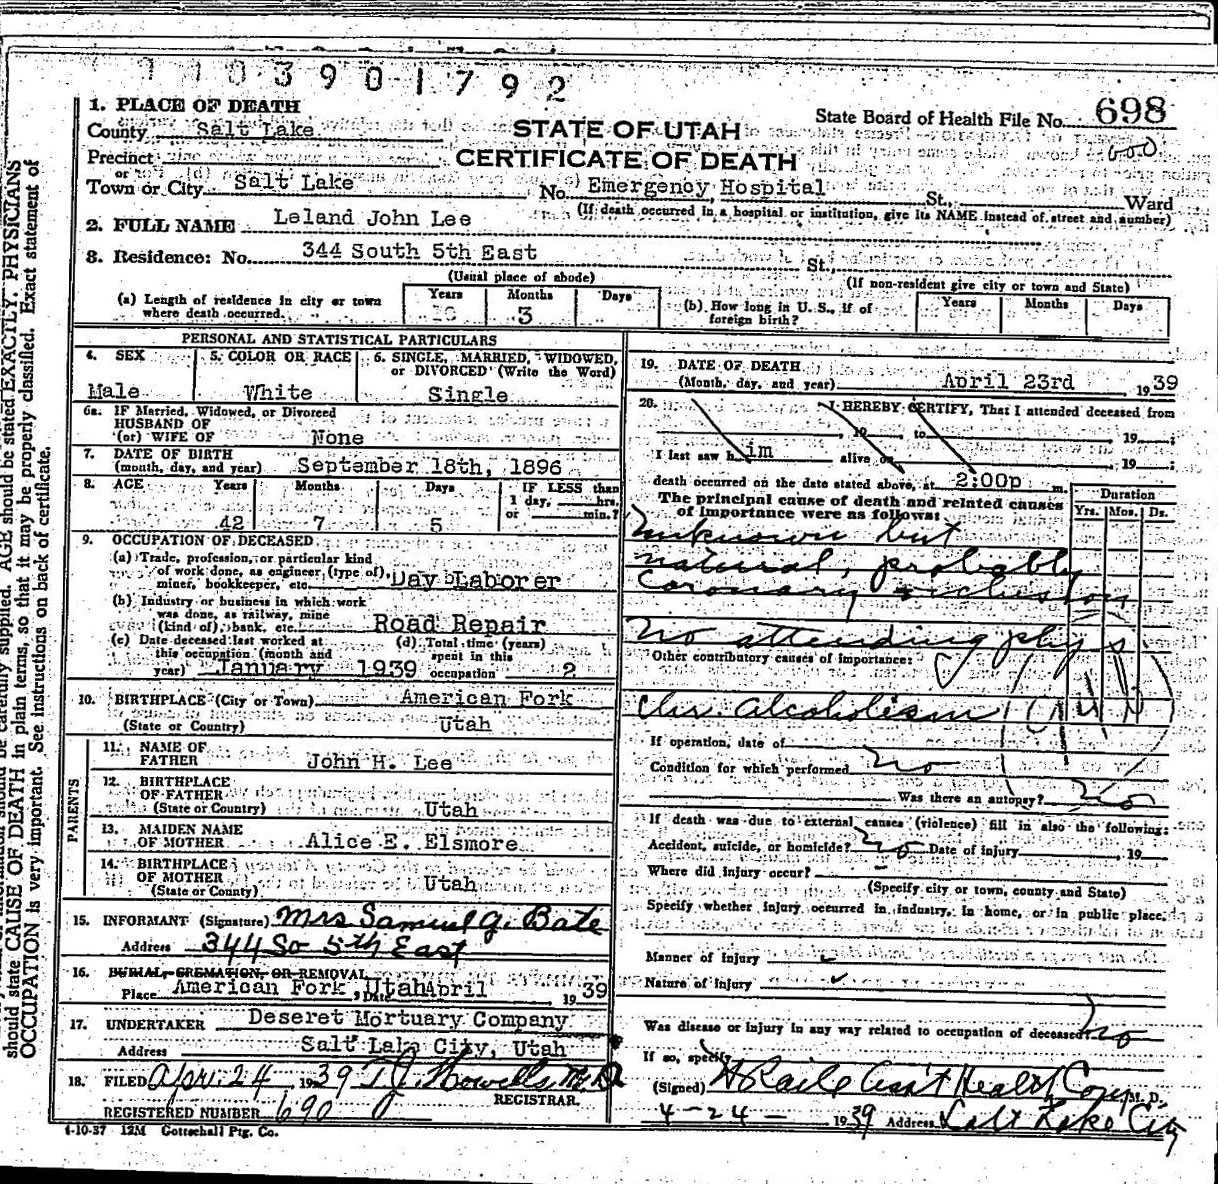 1 1 0 3 9 0 1 7 9 2
1. PLACE OF DEATH
County Salt Lake
State Board of Health File No. 698
STATE OF UTAH
600
Precinct
CERTIFICATE OF DEATH
or
Town or City Salt Lake No. Emergency Hospital St. Ward
(If death occurred in a hospital or institution, give its NAME instead of street and number)
2. FULL NAME Leland John Lee
3. Residence: No. 344 South 5th East St.
(Usual place of abode) (If non-resident give city or town and State)
(a) Length of residence in city or town where death occurred. Years Months 3 Days
(b) How long in U. S., if of foreign birth? Years Months Days
PERSONAL AND STATISTICAL PARTICULARS
4. SEX Male
5. COLOR OR RACE White
6. SINGLE, MARRIED, WIDOWED, or DIVORCED (Write the Word) Single
6a. IF Married, Widowed, or Divorced
HUSBAND OF
(or) WIFE OF None
7. DATE OF BIRTH
(month, day, and year) September 18th, 1896
8. AGE Years 42 Months 7 Days 5
IF LESS than
1 day, hrs.
or min.?
9. OCCUPATION OF DECEASED
(a) Trade, profession, or particular kind
of work done, as engineer, (type of),
miner, bookkeeper, etc. Day Laborer
(b) Industry or business in which work
was done, as railway, mine
(kind of), bank, etc. Road Repair
(c) Date deceased last worked at
this occupation (month and
year) January 1939
(d) Total time (years)
spent in this
occupation 2
10. BIRTHPLACE (City or Town) American Fork
(State or Country) Utah
PARENTS
11. NAME OF
FATHER John H. Lee
12. BIRTHPLACE
OF FATHER
(State or Country) Utah
13. MAIDEN NAME
OF MOTHER Alice E. Elsmore
14. BIRTHPLACE
OF MOTHER
(State or County) Utah
15. INFORMANT (Signature) Mrs Samuel G. Bate
Address 344 So 5th East
16. BURIAL, CREMATION, OR REMOVAL
Place American Fork, Utah Date April 1939
17. UNDERTAKER Deseret Mortuary Company
Address Salt Lake City, Utah
18. FILED Apr. 24 1939 T J Howells M.D.
REGISTRAR.
REGISTERED NUMBER 690
4-10-37 12M Gottschall Ptg. Co.
19. DATE OF DEATH
(Month, day, and year) April 23rd 1939
20. I HEREBY CERTIFY, That I attended deceased from
19 to 19 ;
I last saw him alive on 19 ;
death occurred on the date stated above, at 2:00p m.
The principal cause of death and related causes
of importance were as follows:
Duration
Yrs. Mos. Ds.
Unknown but
natural, probably
coronary occlusion
No attending phys.
Other contributory causes of importance:
Chr. alcoholism
If operation, date of
Condition for which performed No
Was there an autopsy? No
If death was due to external causes (violence) fill in also the following:
Accident, suicide, or homicide? No Date of injury 19
Where did injury occur?
(Specify city or town, county and State)
Specify whether injury occurred in industry, in home, or in public place,
Manner of injury
Nature of injury
Was disease or injury in any way related to occupation of deceased? No
If so, specify
(Signed) Ass't Health Com M. D.
4-24- 1939 Address Salt Lake City
be carefully supplied. AGE should be stated EXACTLY. PHYSICIANS
should state CAUSE OF DEATH in plain terms, so that it may be properly classified. Exact statement of
OCCUPATION is very important. See instructions on back of certificate.